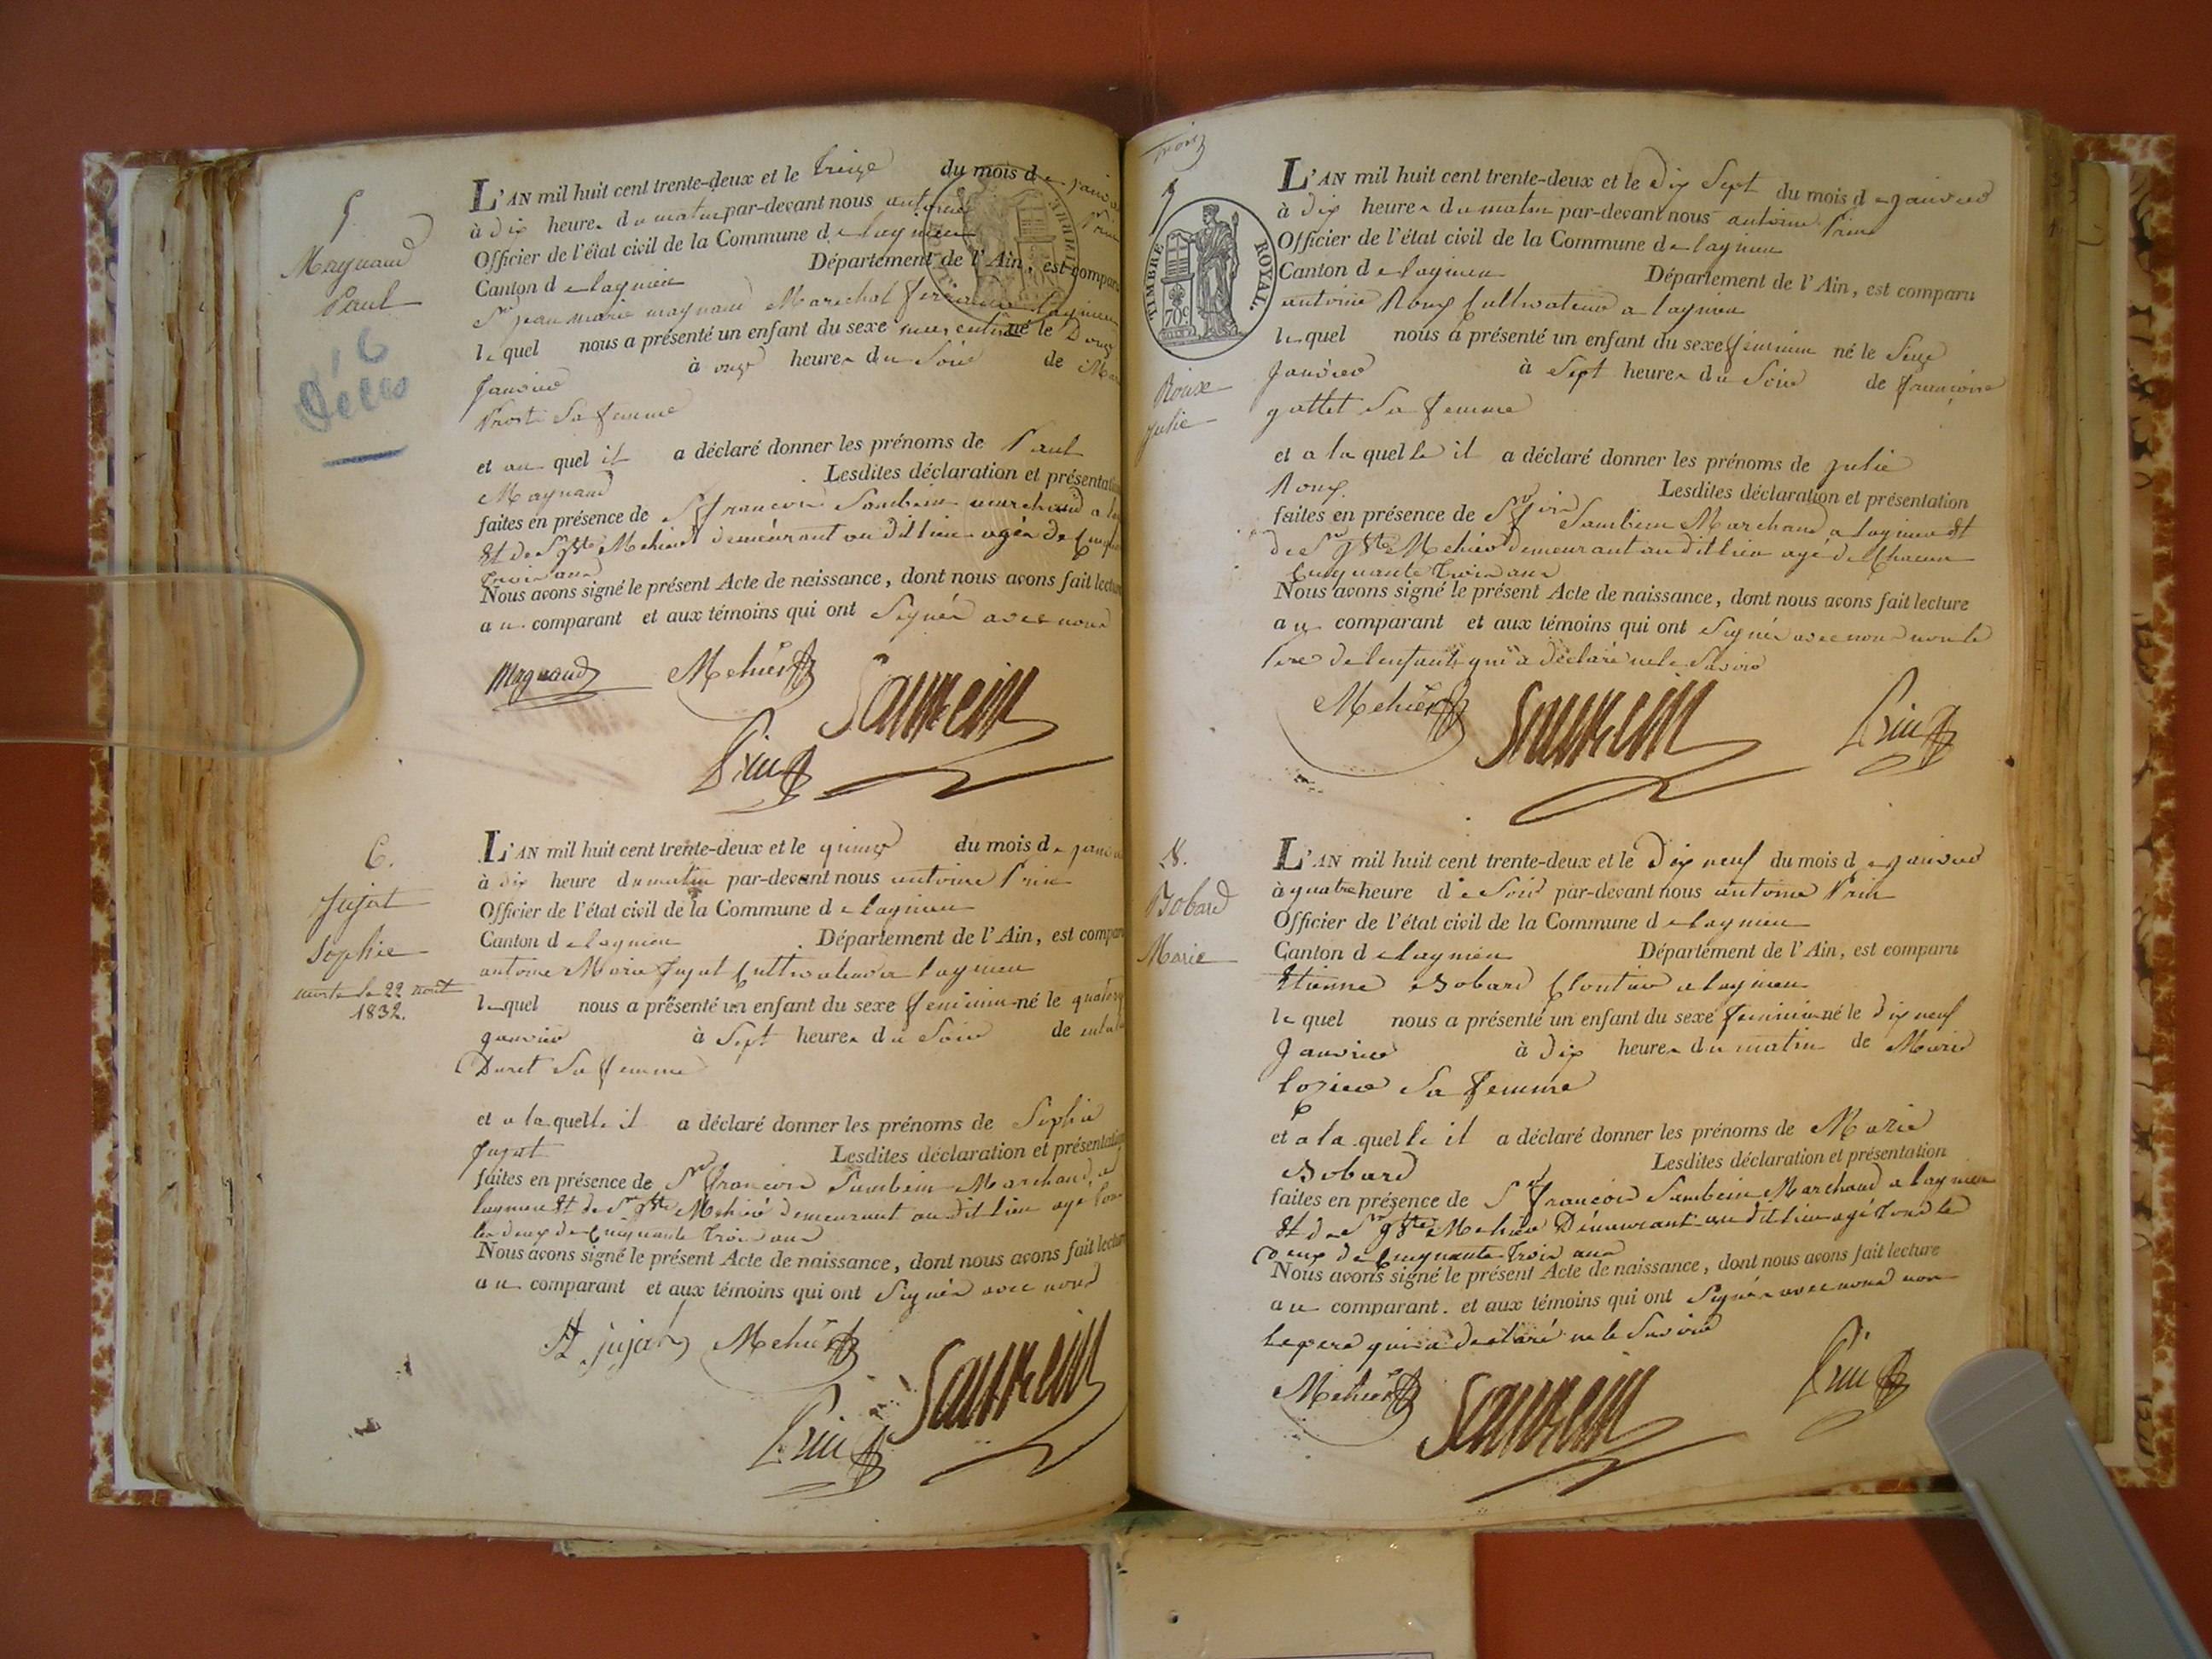 5.
Magnand
Paul
6
Décès
L'AN mil huit cent trente-deux et le treize du mois de janvi
à dix heures du matin par-devant nous antoine Prin
Officier de l'état civil de la Commune de lagnieu
Canton de lagnieu Département de l'Ain, est comparu
Sr jean marie magnand Marechal ferrant a lagnieu
lequel nous a présenté un enfant du sexe masculin né le Douze
Janvier à onze heures du Soir de Mar
Prost Sa femme
et au quel il a déclaré donner les prénoms de Paul
Magnand Lesdites déclaration et présentation
faites en présence de Sr françois Sambein marchand a la
Et de Sr Jte Mehier demeurant au dit lieu agés de Cinqu
trois ans
Nous avons signé le présent Acte de naissance, dont nous avons fait lecture
au comparant et aux témoins qui ont Signés avec nous
Magnand Mehier Sambein
Prin
6.
Jujat
Sophie
morte le 22 aout
1832.
L'AN mil huit cent trente-deux et le quinze du mois de janvi
à dix heure du matin par-devant nous antoine Prin
Officier de l'état civil de la Commune de lagnieu
Canton de lagnieu Département de l'Ain, est compar
antoine Marie Jujat Cultivateur a lagnieu
lequel nous a présenté un enfant du sexe feminin né le quatorz
janvier à Sept heures du Soir de
Duret Sa femme
et a la quelle il a déclaré donner les prénoms de Sophie
Jujat Lesdites déclaration et présentation
faites en présence de Sr françois Sambein Marchand a
lagnieu Et de Sr Jte Mehier demeurant au dit lieu agé tous
les deux de Cinquante trois ans
Nous avons signé le présent Acte de naissance, dont nous avons fait lecture
au comparant et aux témoins qui ont Signés avec nous
At jujat Mehier Sambein
Prin
Trois
7
TIMBRE ROYAL.
70c
Roux
Julie
L'AN mil huit cent trente-deux et le Dix Sept du mois de janvier
à dix heures du matin par-devant nous antoine Prin
Officier de l'état civil de la Commune de lagnieu
Canton de lagnieu Département de l'Ain, est comparu
antoine Roux Cultivateur a lagnieu
lequel nous a présenté un enfant du sexe féminin né le Seize
Janvier à Sept heures du Soir de françoise
gattet Sa femme
et a la quelle il a déclaré donner les prénoms de julie
Roux Lesdites déclaration et présentation
faites en présence de Sr fois Sambein Marchand a lagnieu Et
de Sr Jte Mehier demeurant au dit lieu agé de Chacun
Cinquante trois ans
Nous avons signé le présent Acte de naissance, dont nous avons fait lecture
au comparant et aux témoins qui ont Signés avec nous non le
Pere de lenfant qui a déclaré ne le Savoir
Mehier Sambein Prin
8.
Bobard
Marie
L'AN mil huit cent trente-deux et le Dix neuf du mois de janvier
à quatre heure de Soir par-devant nous antoine Prin
Officier de l'état civil de la Commune de lagnieu
Canton de lagnieu Département de l'Ain, est comparu
Etienne Bobard Cloutier a lagnieu
lequel nous a présenté un enfant du sexe feminin né le dix neuf
Janvier à Dix heures du matin de Marie
lozier Sa femme
et a la quelle il a déclaré donner les prénoms de Marie
Bobard Lesdites déclaration et présentation
faites en présence de Sr françois Sambein Marchand a lagnieu
Et de Sr Jte Mehier Demeurant au dit lieu agé tous les
Deux de Cinquante trois ans
Nous avons signé le présent Acte de naissance, dont nous avons fait lecture
au comparant. et aux témoins qui ont Signés avec nous non
le pere qui a déclaré ne le Savoir
Mehier Sambein Prin